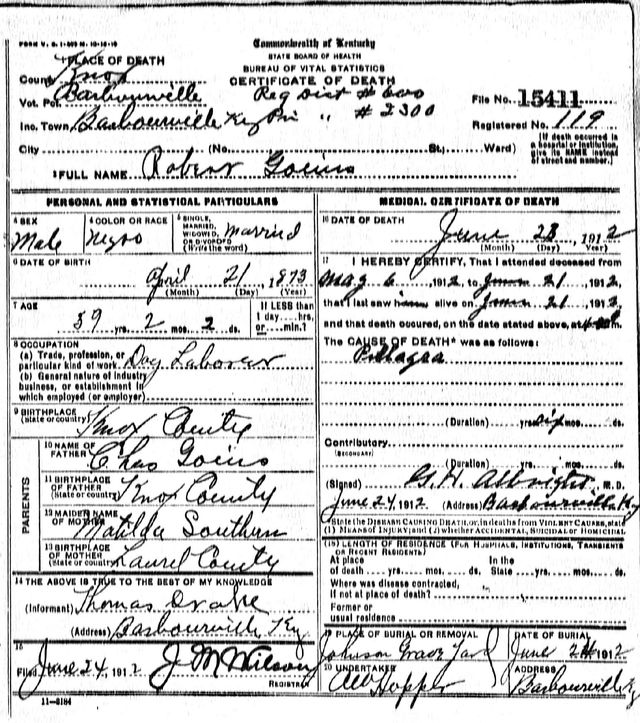 FORM V. S. 1-50M M. 10-16-10
Commonwealth of Kentucky
STATE BOARD OF HEALTH
BUREAU OF VITAL STATISTICS
CERTIFICATE OF DEATH
1 PLACE OF DEATH
County Knox
Vot. Pct. Barbourville Reg Dist # 600
Inc. Town Barbourville Ky Pri " # 2300
File No. 15411
Registered No. 119
City (No. St.; Ward)
(If death occurred in a hospital or institution, give its NAME instead of street and number.)
2 FULL NAME Robert Goins
PERSONAL AND STATISTICAL PARTICULARS
3 SEX Male
4 COLOR OR RACE Negro
5 SINGLE, MARRIED, WIDOWED, OR DIVORCED (Write the word) Married
6 DATE OF BIRTH
April 21, 1873
(Month) (Day) (Year)
7 AGE
39 yrs. 2 mos. 2 ds.
If LESS than 1 day....hrs. or....min.?
8 OCCUPATION
(a) Trade, profession, or particular kind of work Day Laborer
(b) General nature of industry business, or establishment in which employed (or employer)
9 BIRTHPLACE
(State or country) Knox County
PARENTS
10 NAME OF FATHER Chas Goins
11 BIRTHPLACE OF FATHER (State or country) Knox County
12 MAIDEN NAME OF MOTHER Matilda Southern
13 BIRTHPLACE OF MOTHER (State or country) Laurel County
14 THE ABOVE IS TRUE TO THE BEST OF MY KNOWLEDGE
(Informant) Thomas Drake
(Address) Barbourville Ky
15
Filed June 24, 1912 J M Wilson
REGISTRAR
11-3184
MEDICAL CERTIFICATE OF DEATH
16 DATE OF DEATH
June 23 1912
(Month) (Day) (Year)
17 I HEREBY CERTIFY, That I attended deceased from
May 6, 1912, to June 21, 1912,
that I last saw him alive on June 21, 1912,
and that death occured, on the date stated above, at m.
The CAUSE OF DEATH* was as follows:
Pellagra
(Duration) yrs. six mos. ds.
Contributory
(SECONDARY)
(Duration) yrs. mos. ds.
(Signed) G. H. Albright M. D.
June 24, 1912 (Address) Barbourville Ky
*State the DISEASE CAUSING DEATH, or, in deaths from VIOLENT CAUSES, state (1) MEANS OF INJURY; and (2) whether ACCIDENTAL, SUICIDAL or HOMICIDAL
18 LENGTH OF RESIDENCE (FOR HOSPITALS, INSTITUTIONS, TRANSIENTS OR RECENT RESIDENTS)
At place of death yrs. mos. ds. In the State yrs. mos. ds.
Where was disease contracted, if not at place of death?
Former or usual residence
19 PLACE OF BURIAL OR REMOVAL
Johnson Grave Yard
DATE OF BURIAL
June 24 1912
20 UNDERTAKER
Hopper
ADDRESS
Barbourville Ky